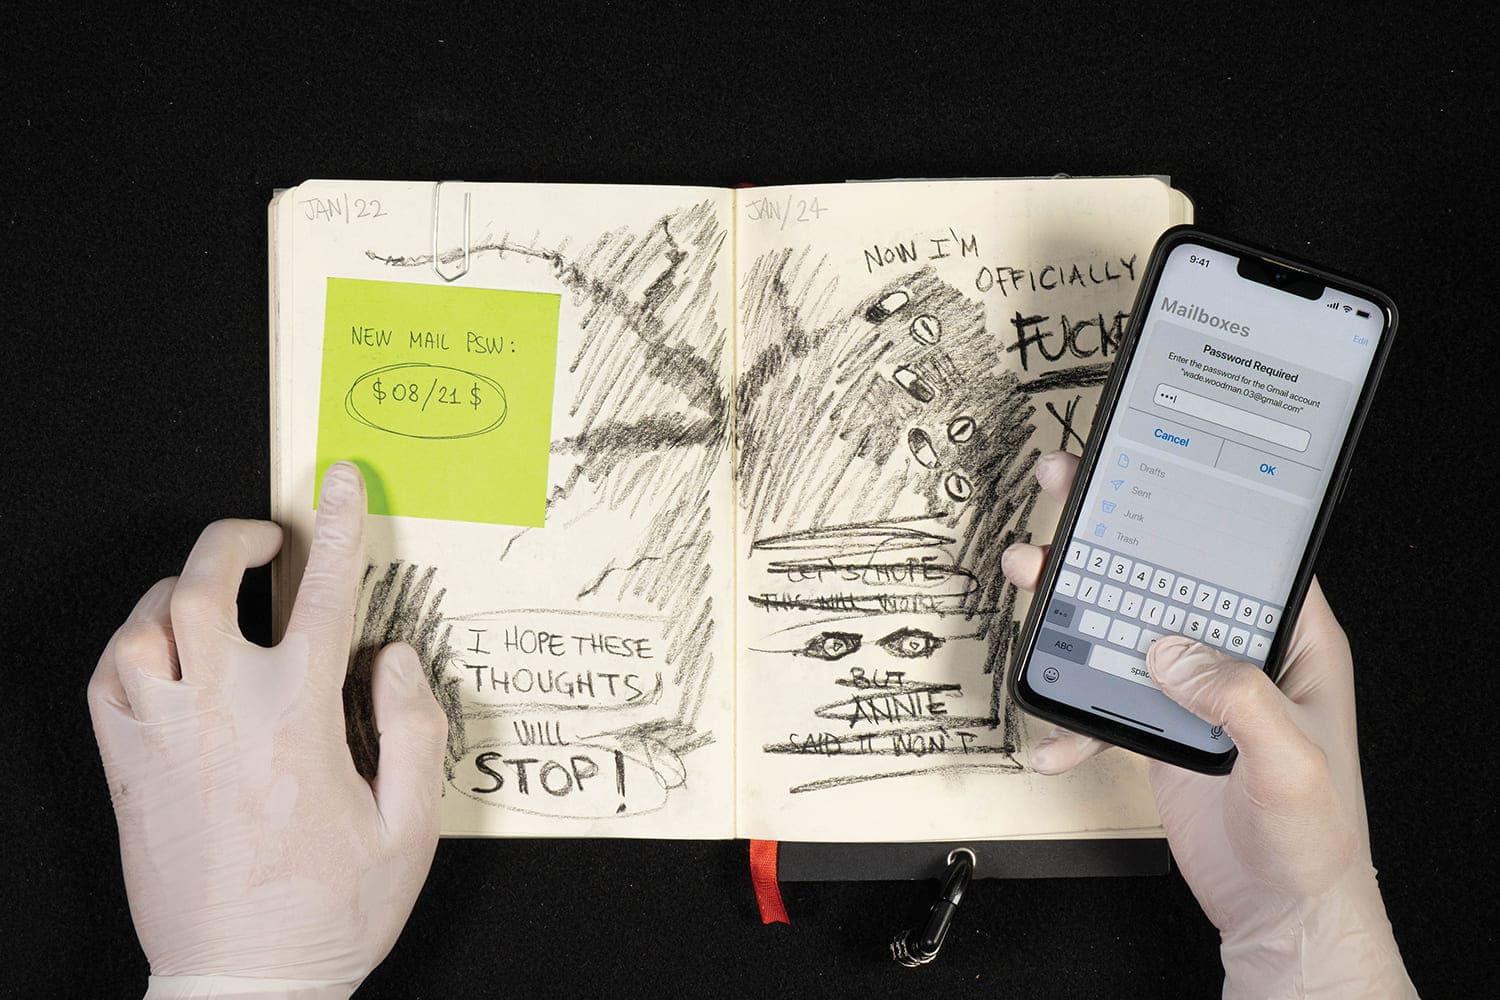 JAN/22
NEW MAIL PSW:
$08/21$
I HOPE THESE
THOUGHTS
WILL
STOP!
JAN/24
NOW I'M
OFFICIALLY
LET'S HOPE
THIS WILL WORK
BUT
ANNIE
SAID IT WON'T
9:41
Edit
Mailboxes
Password Required
Enter the password for the Gmail account
"wade.woodman.03@gmail.com"
•••
Cancel
OK
Drafts
Sent
Junk
Trash
1 2 3 4 5 6 7 8 9 0
- / : ; ( ) $ & @ "
#+= . ,
ABC